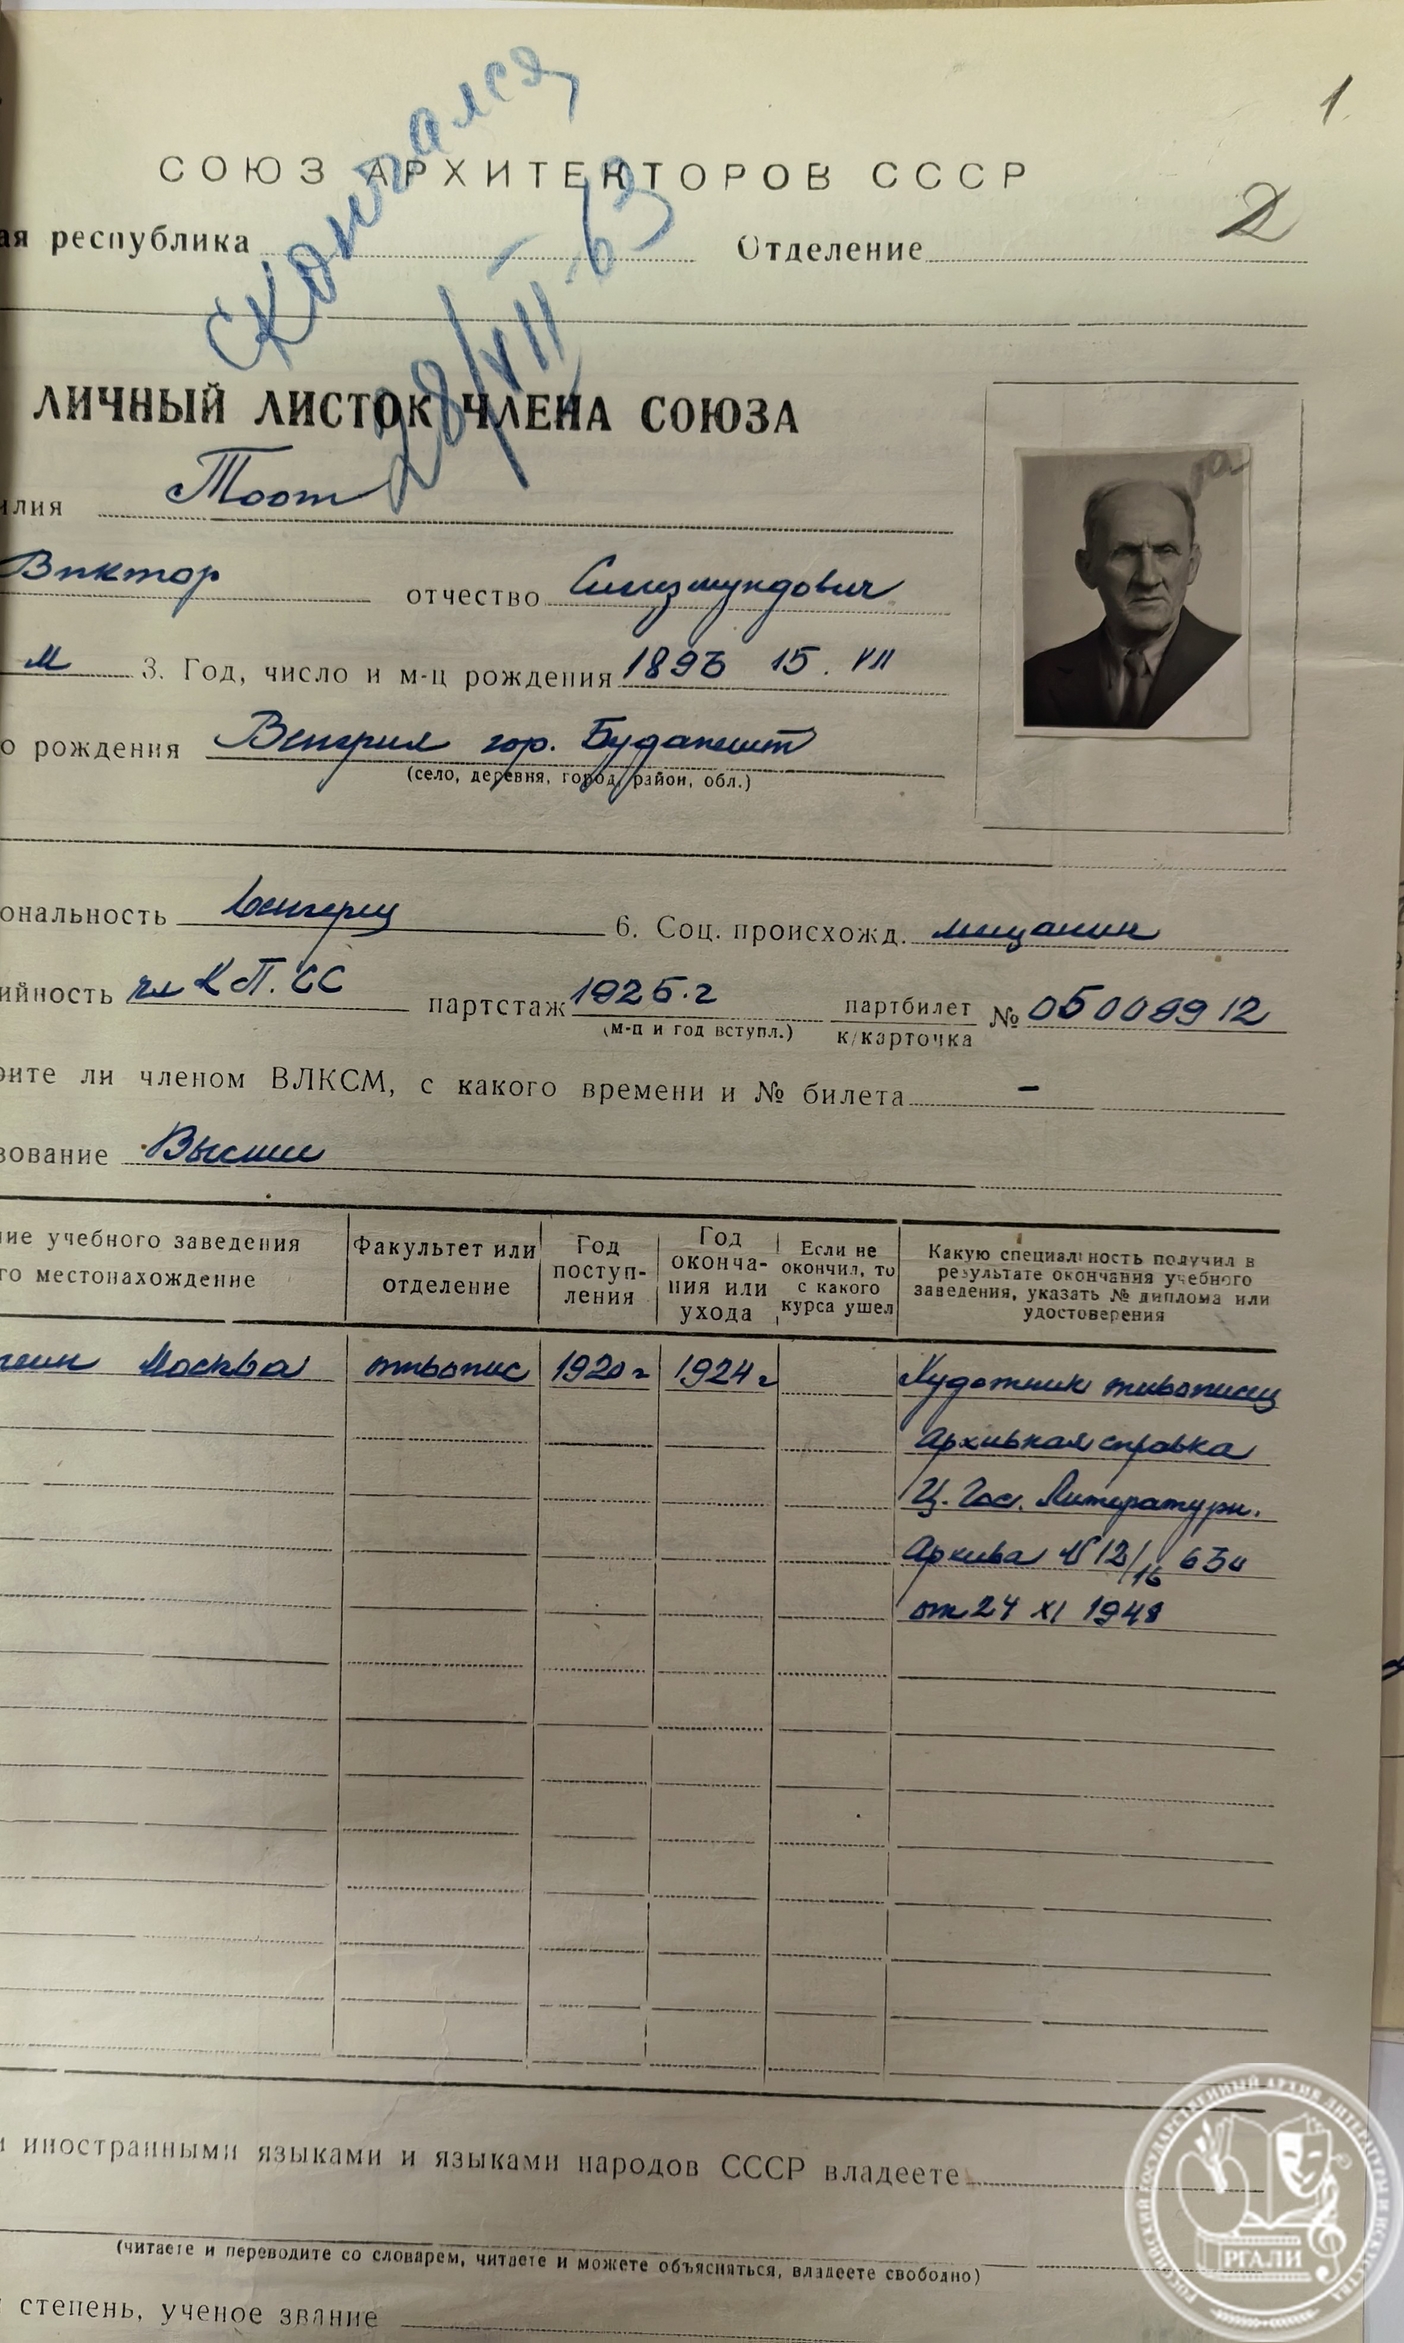 1.
Скончался
28/VII-63
СОЮЗ АРХИТЕКТОРОВ СССР
2
ая республика Отделение
ЛИЧНЫЙ ЛИСТОК ЧЛЕНА СОЮЗА
илия Тоот
Виктор отчество Сигизмундович
м 3. Год, число и м-ц рождения 1893 15. VII
о рождения Венгрия гор. Будапешт
(село, деревня, город, район, обл.)
ональность венгерец 6. Соц. происхожд. мещанин
ийность чл К П. СС партстаж 1925.г партбилет № 05009912
(м-ц и год вступл.) к/карточка
оите ли членом ВЛКСМ, с какого времени и № билета –
зование Высшее
ие учебного заведения
го местонахождение
Факультет или
отделение
Год
поступ-
ления
Год
оконча-
ния или
ухода
Если не
окончил, то
с какого
курса ушел
Какую специальность получил в
результате окончания учебного
заведения, указать № диплома или
удостоверения
Москва живопис 1920 г 1924 г Художник живописец
Архивная справка
Ц. Гос. Литературн.
Архива N 12/16 630
от 24 XI 1948
и иностранными языками и языками народов СССР владеете
(читаете и переводите со словарем, читаете и можете объясняться, владеете свободно)
степень, ученое звание
РОССИЙСКИЙ ГОСУДАРСТВЕННЫЙ АРХИВ ЛИТЕРАТУРЫ И ИСКУССТВА
РГАЛИ